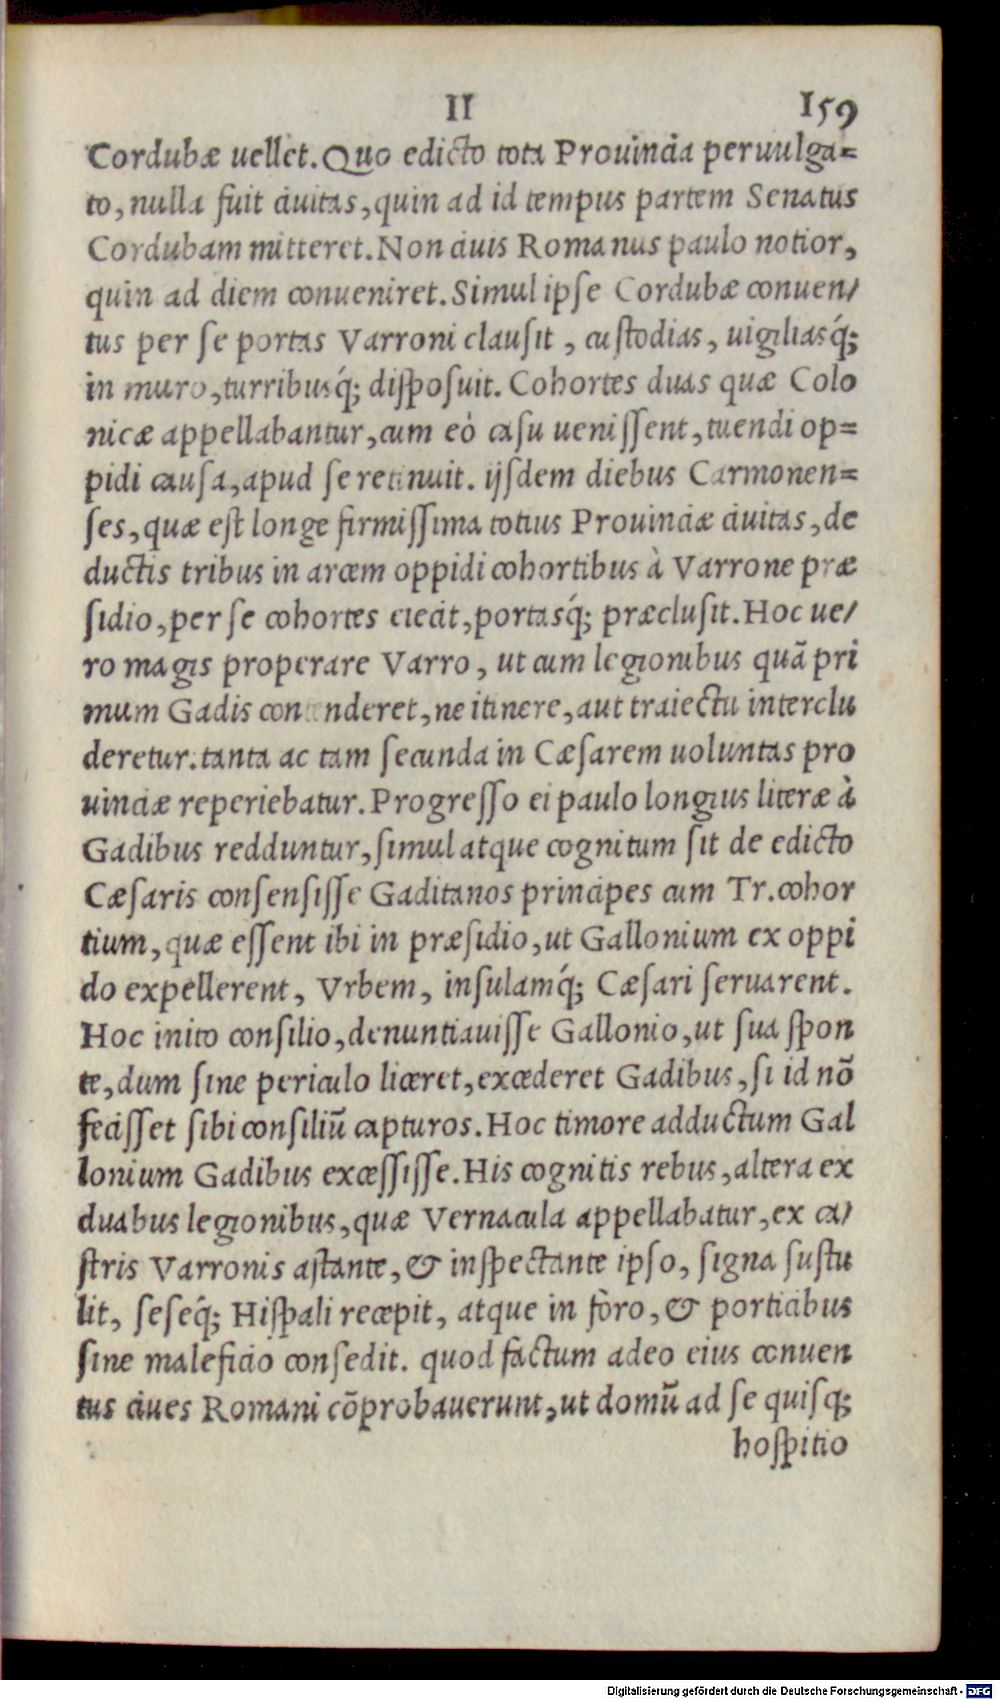 II 159
Cordubæ uellet. Quo edicto tota Prouincia peruulga=
to, nulla fuit ciuitas, quin ad id tempus partem Senatus
Cordubam mitteret. Non ciuis Romanus paulo notior,
quin ad diem conueniret. Simul ipse Cordubæ conuen/
tus per se portas Varroni clausit, custodias, uigiliasq́;
in muro, turribusq́; disposuit. Cohortes duas quæ Colo
nicæ appellabantur, cum eò casu uenissent, tuendi op=
pidi causa, apud se retinuit. ijsdem diebus Carmonen=
ses, quæ est longe firmissima totius Prouinciæ ciuitas, de
ductis tribus in arcem oppidi cohortibus à Varrone præ
sidio, per se cohortes eiecit, portasq́; præclusit. Hoc ue/
ro magis properare Varro, ut cum legionibus quã pri
mum Gadis contenderet, ne itinere, aut traiectu interclu
deretur. tanta ac tam secunda in Cæsarem uoluntas pro
uinciæ reperiebatur. Progresso ei paulo longius literæ à
Gadibus redduntur, simul atque cognitum sit de edicto
Cæsaris consensisse Gaditanos principes cum Tr. cohor
tium, quæ essent ibi in præsidio, ut Gallonium ex oppi
do expellerent, Vrbem, insulamq́; Cæsari seruarent.
Hoc inito consilio, denuntiauisse Gallonio, ut sua spon
te, dum sine periculo liceret, excederet Gadibus, si id nõ
fecisset sibi consiliũ capturos. Hoc timore adductum Gal
lonium Gadibus excessisse. His cognitis rebus, altera ex
duabus legionibus, quæ Vernacula appellabatur, ex ca/
stris Varronis astante, & inspectante ipso, signa sustu
lit, seseq́; Hispali recepit, atque in foro, & porticibus
sine maleficio consedit. quod factum adeo eius conuen
tus ciues Romani cõprobauerunt, ut domũ ad se quisq;
hospitio
Digitalisierung gefördert durch die Deutsche Forschungsgemeinschaft - DFG